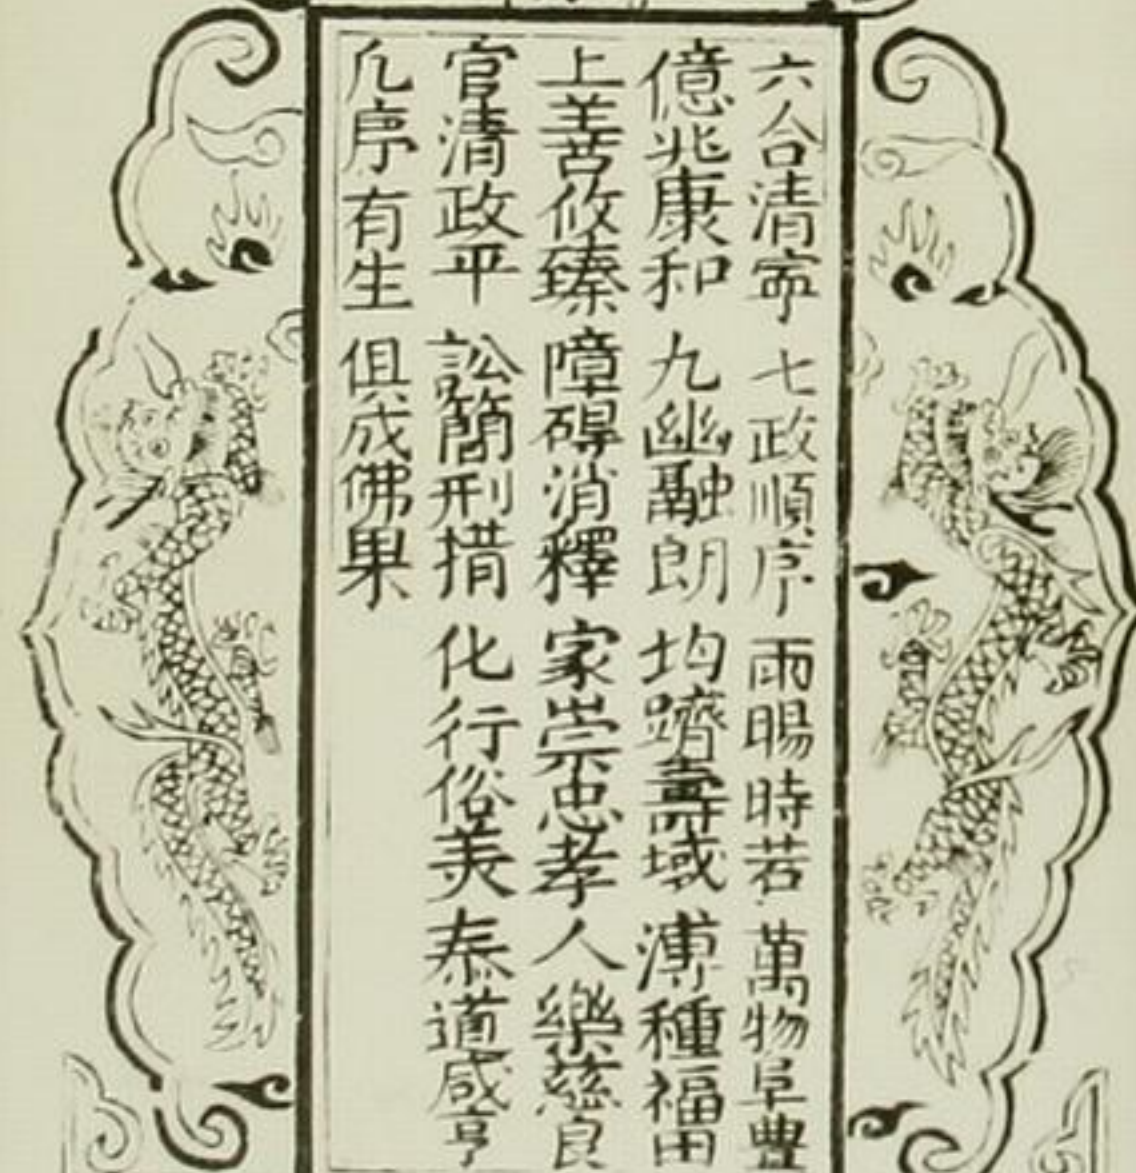 六合清寧 七政順序 雨暘時若 萬物阜豐
億兆康和 九幽融朗 均躋壽域 溥種福田
上善攸臻 障碍消釋 家崇忠孝 人樂慈良
官清政平 訟簡刑措 化行俗美 泰道咸亨
凡序有生 俱成佛果